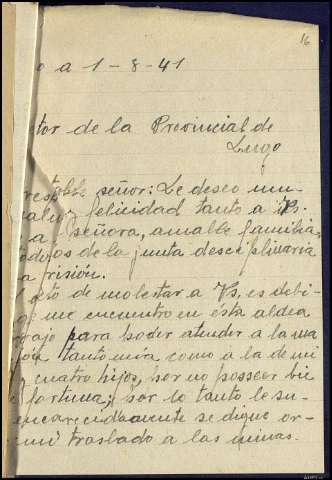 16
o a 1 - 8 - 41
tor de la Provincial de
Lugo
respble señor: Le deseo mu
salud y felicidad tanto a Vs.
a señora, amable familia
todos de la junta desciplinaria
a risión.
jeto de molestar a Vs, es debi
ge me encuentro en esta aldea
bajo para poder atender a la ma
tanto mia como a la de mi
y cuatro hijos, por no posseer bie
fortuna; por lo tanto le su
encarecidamente se digne or
mi traslado a las minas.